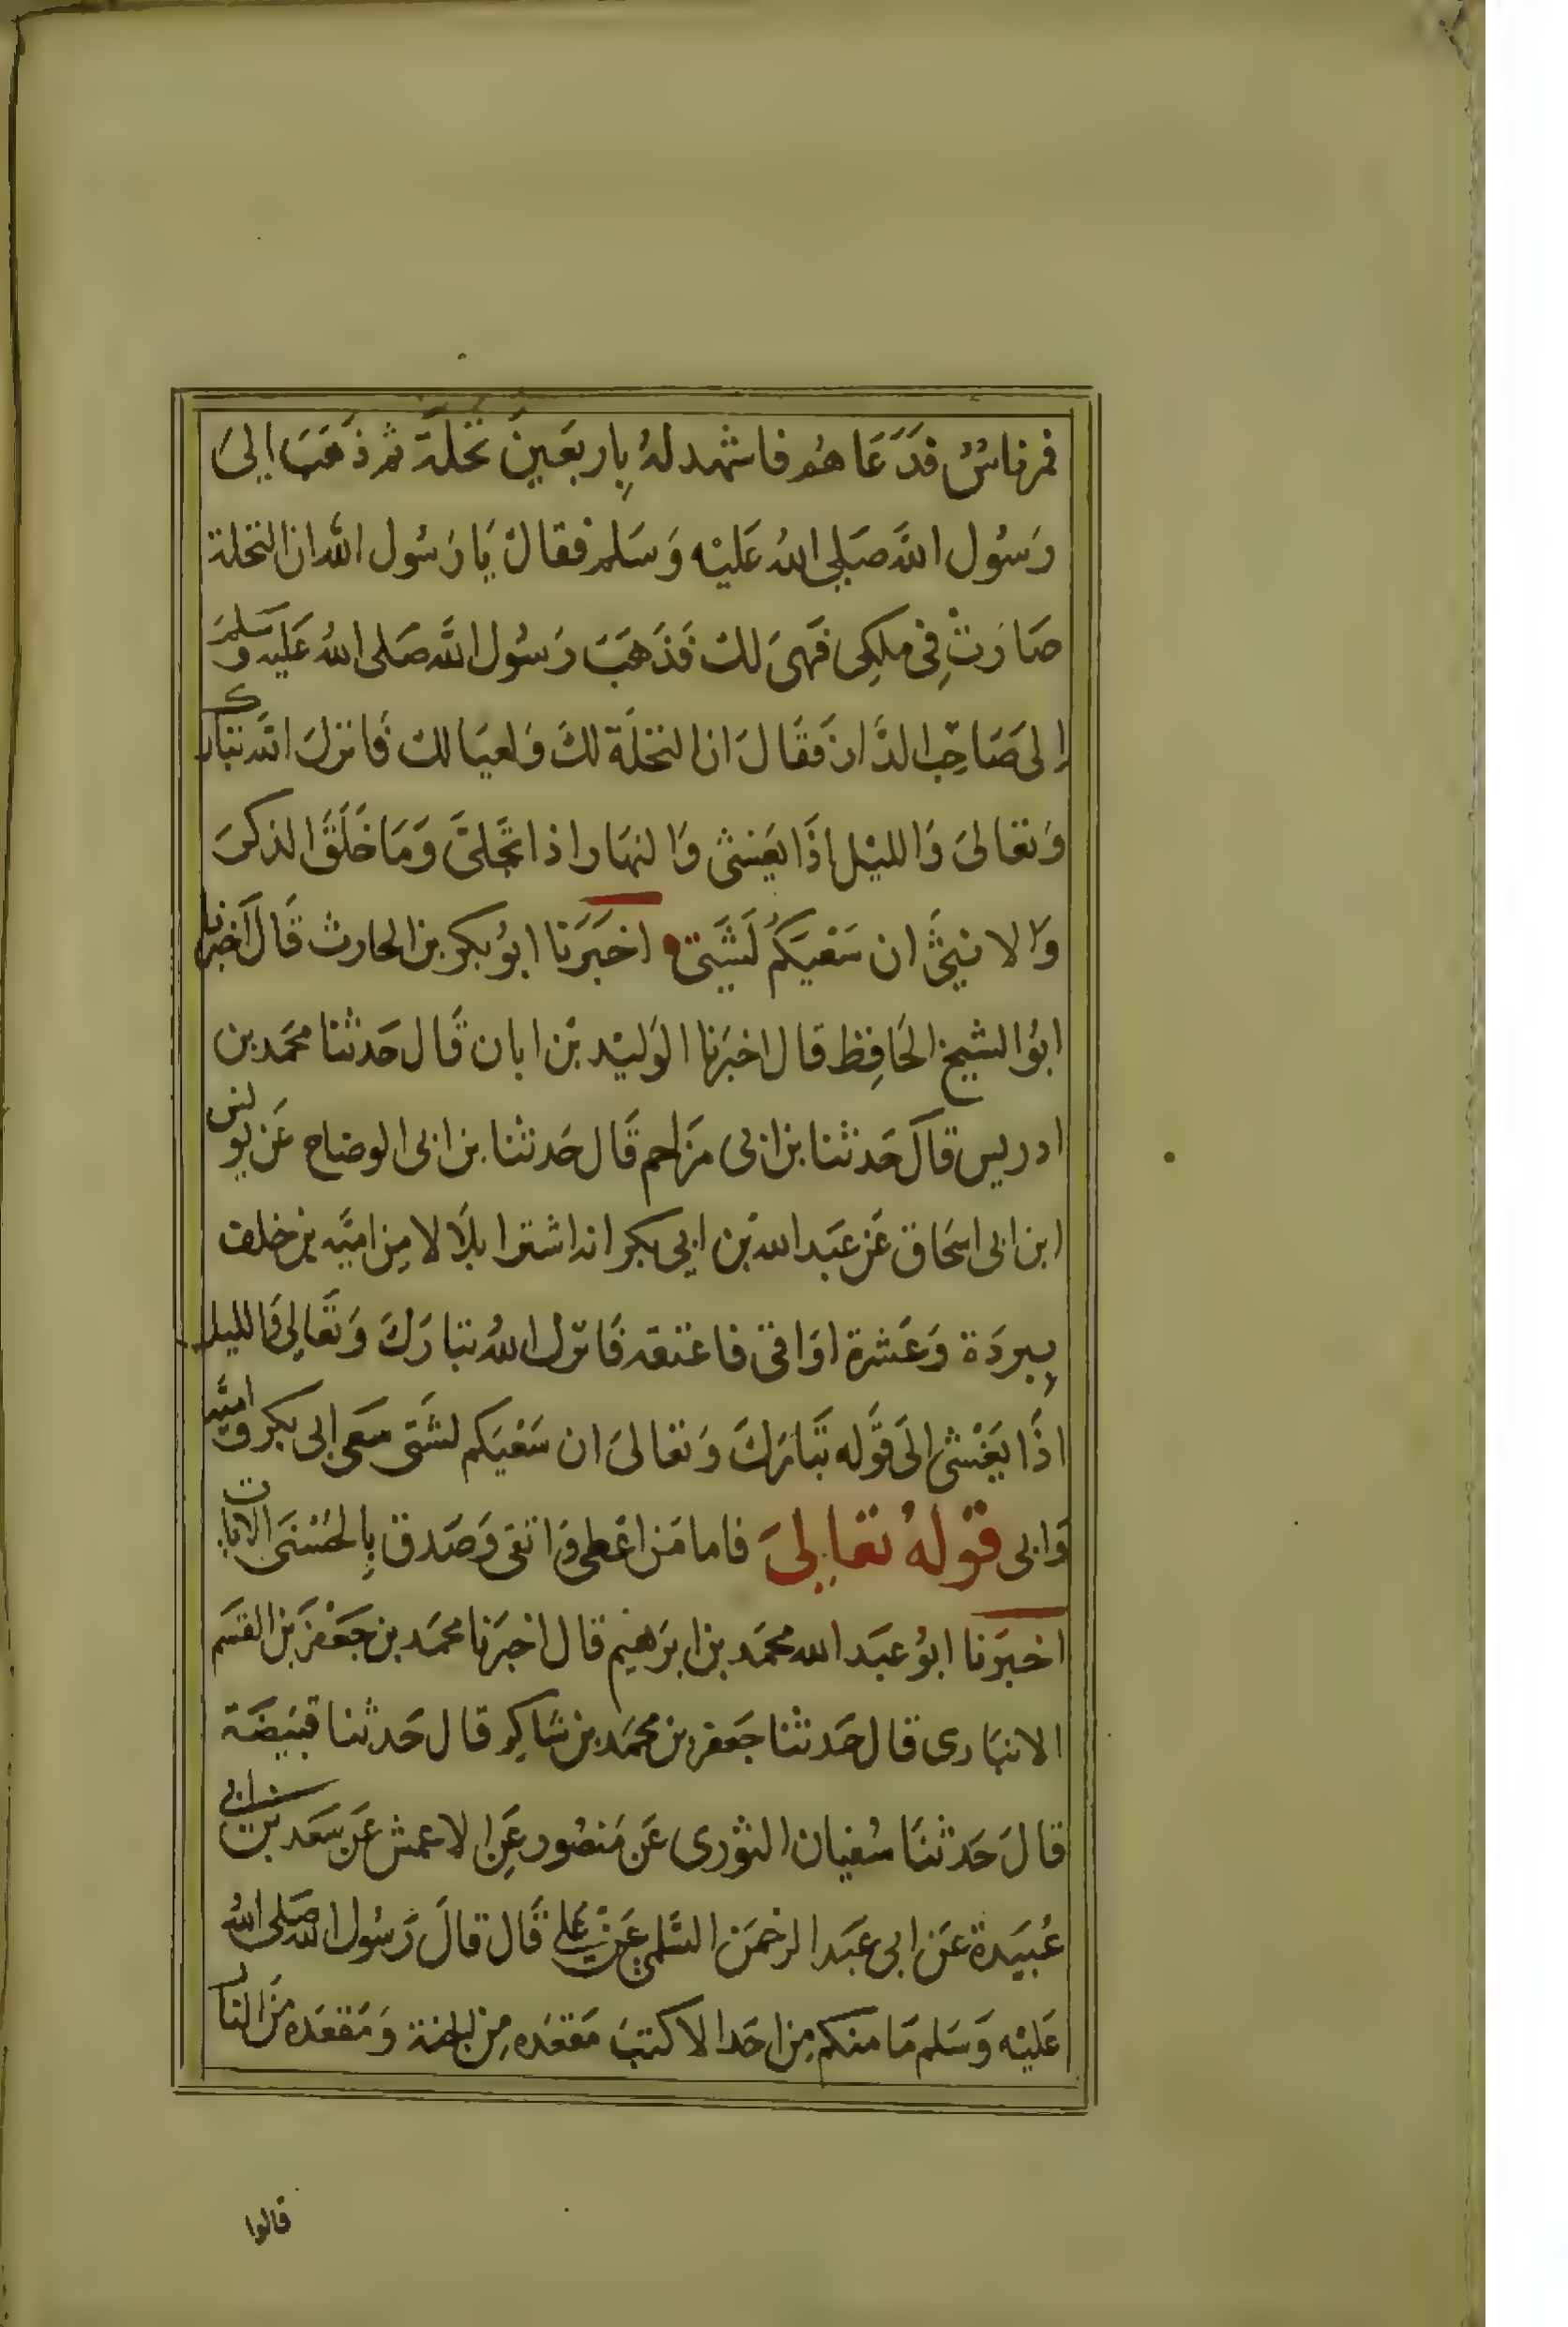 فمرناسٌ فدَعَا هُم فاشهد لهُ بِاربَعينَ نخلة ثم ذهَبَ الىَ
رَسُول اللهَّ صَلى اللهُ عَليْه وَسَلم فقالَ يَا رَسُول الله ان النخلة
صَارَتْ فِى ملكِى فَهىَ لكَ فَذهَبَ رَسُول اللهَّ صَلى اللهُ عَليه وسَلمَ
إلىَ صَاحِب الدَّار فَقَالَ ان النخلَة لكَ وَلعيَالكَ فَانزلَ اللهَّ تبارك
وَتعَالىَ وَالليْل اذَا يَغشى وَالنهَار اذا تَجَلىَّ وَمَا خَلَقَ الذكرَ
وَالانثىَ ان سَعْيَكمُ لَشَتى اخبَرَنا ابوُ بكر بن الحارث قَالَ اَخبرنا
ابوُ الشيخ الحَافِظ قال اخبرَنا الوَليْد بْن ابان قَال حَدثنا محمَد بن
ادريس قَالَ حَدثنا بن ابى مزَاحم قَال حَدثنا بن ابى الوضاح عَن يونس
ابن ابى اسحَاق عَن عَبَد الله بْن ابِى بكر انه اشترا بلَالا مِن اميَّه بن خلف
بِبردَة وَعَشرة اوَاقى فاعتقه فَانزل اللهُ تبارَكَ وَتعَالى وَالليل
اذَا يَغْشى الىَ قوَله تَبَارَكَ وَتعَالىَ ان سَعْيَكم لشَتى سَعى ابى بكر واميَّه
وَابى قوْلهُ تعَالىَ فاما مَن اعْطى وَاتقى وَصَدق بِالحُسْنىَ الايات
اخبَرَنا ابوُ عبَد الله محمَد بن ابرَهيْم قال اخبرَنا محمَد بن جَعْفرَ بن القسَم
الانبَارى قال حَدثنا جَعفر بن محمَد بن شَاكِر قال حَدثنا قبَيصَة
قالَ حَدثنَا سُفيان الثورى عَن مَنصُور عَنِ الاعمش عَن سَعَد بن ابى
عُبَيدة عَن ابى عَبَد الرحمَن السَّلمى عَنْ عَلى قَال قالَ رَسُول الله صَلى اللهُ
عَليْه وَسَلم مَا منكم مِن احَد الا كتبَ مَقعَده مِن الجنة وَمَقعَده مَن النار
قالوا